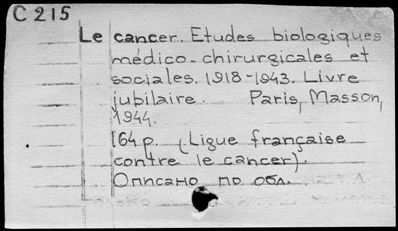 C 215
Le cancer. Etudes biologiques
médico-chirurgicales et
sociales. 1918-1943. Livre
jubilaire. Paris, Masson,
1944.
164 p. (Ligue française
contre le cancer).
Описано по обл.